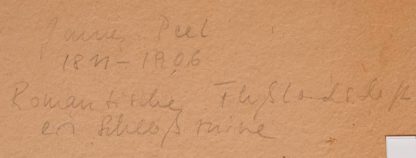 James Peel
1811–1906
Romantische Flußlandschaft
Schloßruine